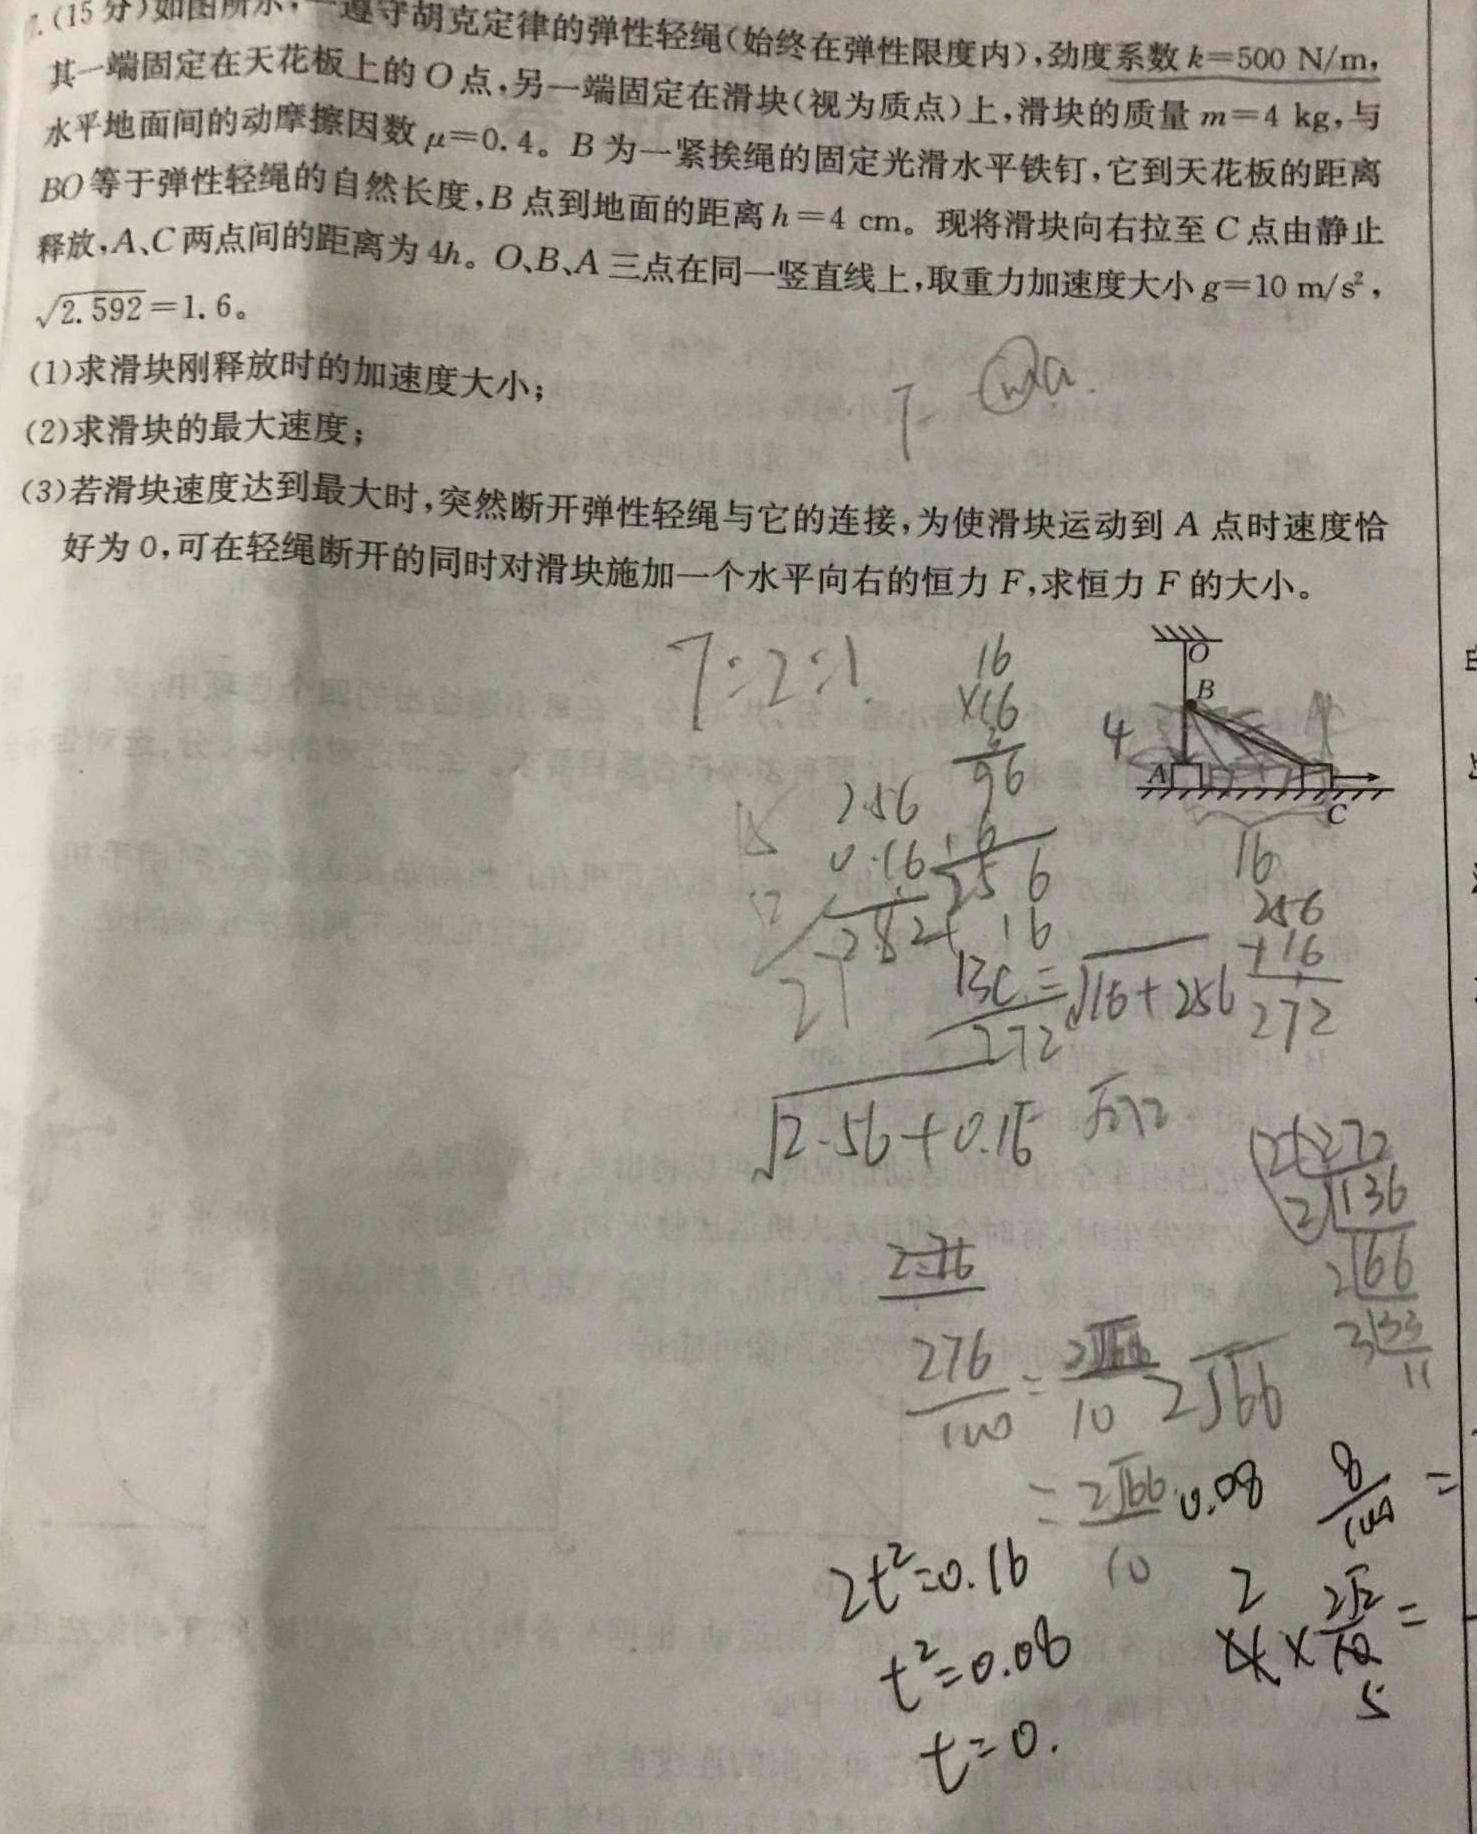 .(15分)如图所示,一遵守胡克定律的弹性轻绳(始终在弹性限度内),劲度系数k=500 N/m,
其一端固定在天花板上的O点,另一端固定在滑块(视为质点)上,滑块的质量m=4 kg,与
水平地面间的动摩擦因数μ=0.4。B为一紧挨绳的固定光滑水平铁钉,它到天花板的距离
BO等于弹性轻绳的自然长度,B点到地面的距离h=4 cm。现将滑块向右拉至C点由静止
释放,A、C两点间的距离为4h。O、B、A三点在同一竖直线上,取重力加速度大小g=10 m/s²,
√2.592=1.6。
(1)求滑块刚释放时的加速度大小;
(2)求滑块的最大速度;
(3)若滑块速度达到最大时,突然断开弹性轻绳与它的连接,为使滑块运动到A点时速度恰
好为0,可在轻绳断开的同时对滑块施加一个水平向右的恒力F,求恒力F的大小。
7:2:1
16
×16
96
16
256
O
B
4
A
C
16
256
+16
272
2.56
0.16
16
BC=√16+256
272
√2.56+0.16
√272
2 272
2 136
2 66
3 33
11
276
100
=
10
2√66
=
2√66
10
0.08
8
100
=
2t²=0.16
t²=0.08
t=0.
2
4×
2√2
10
=
5